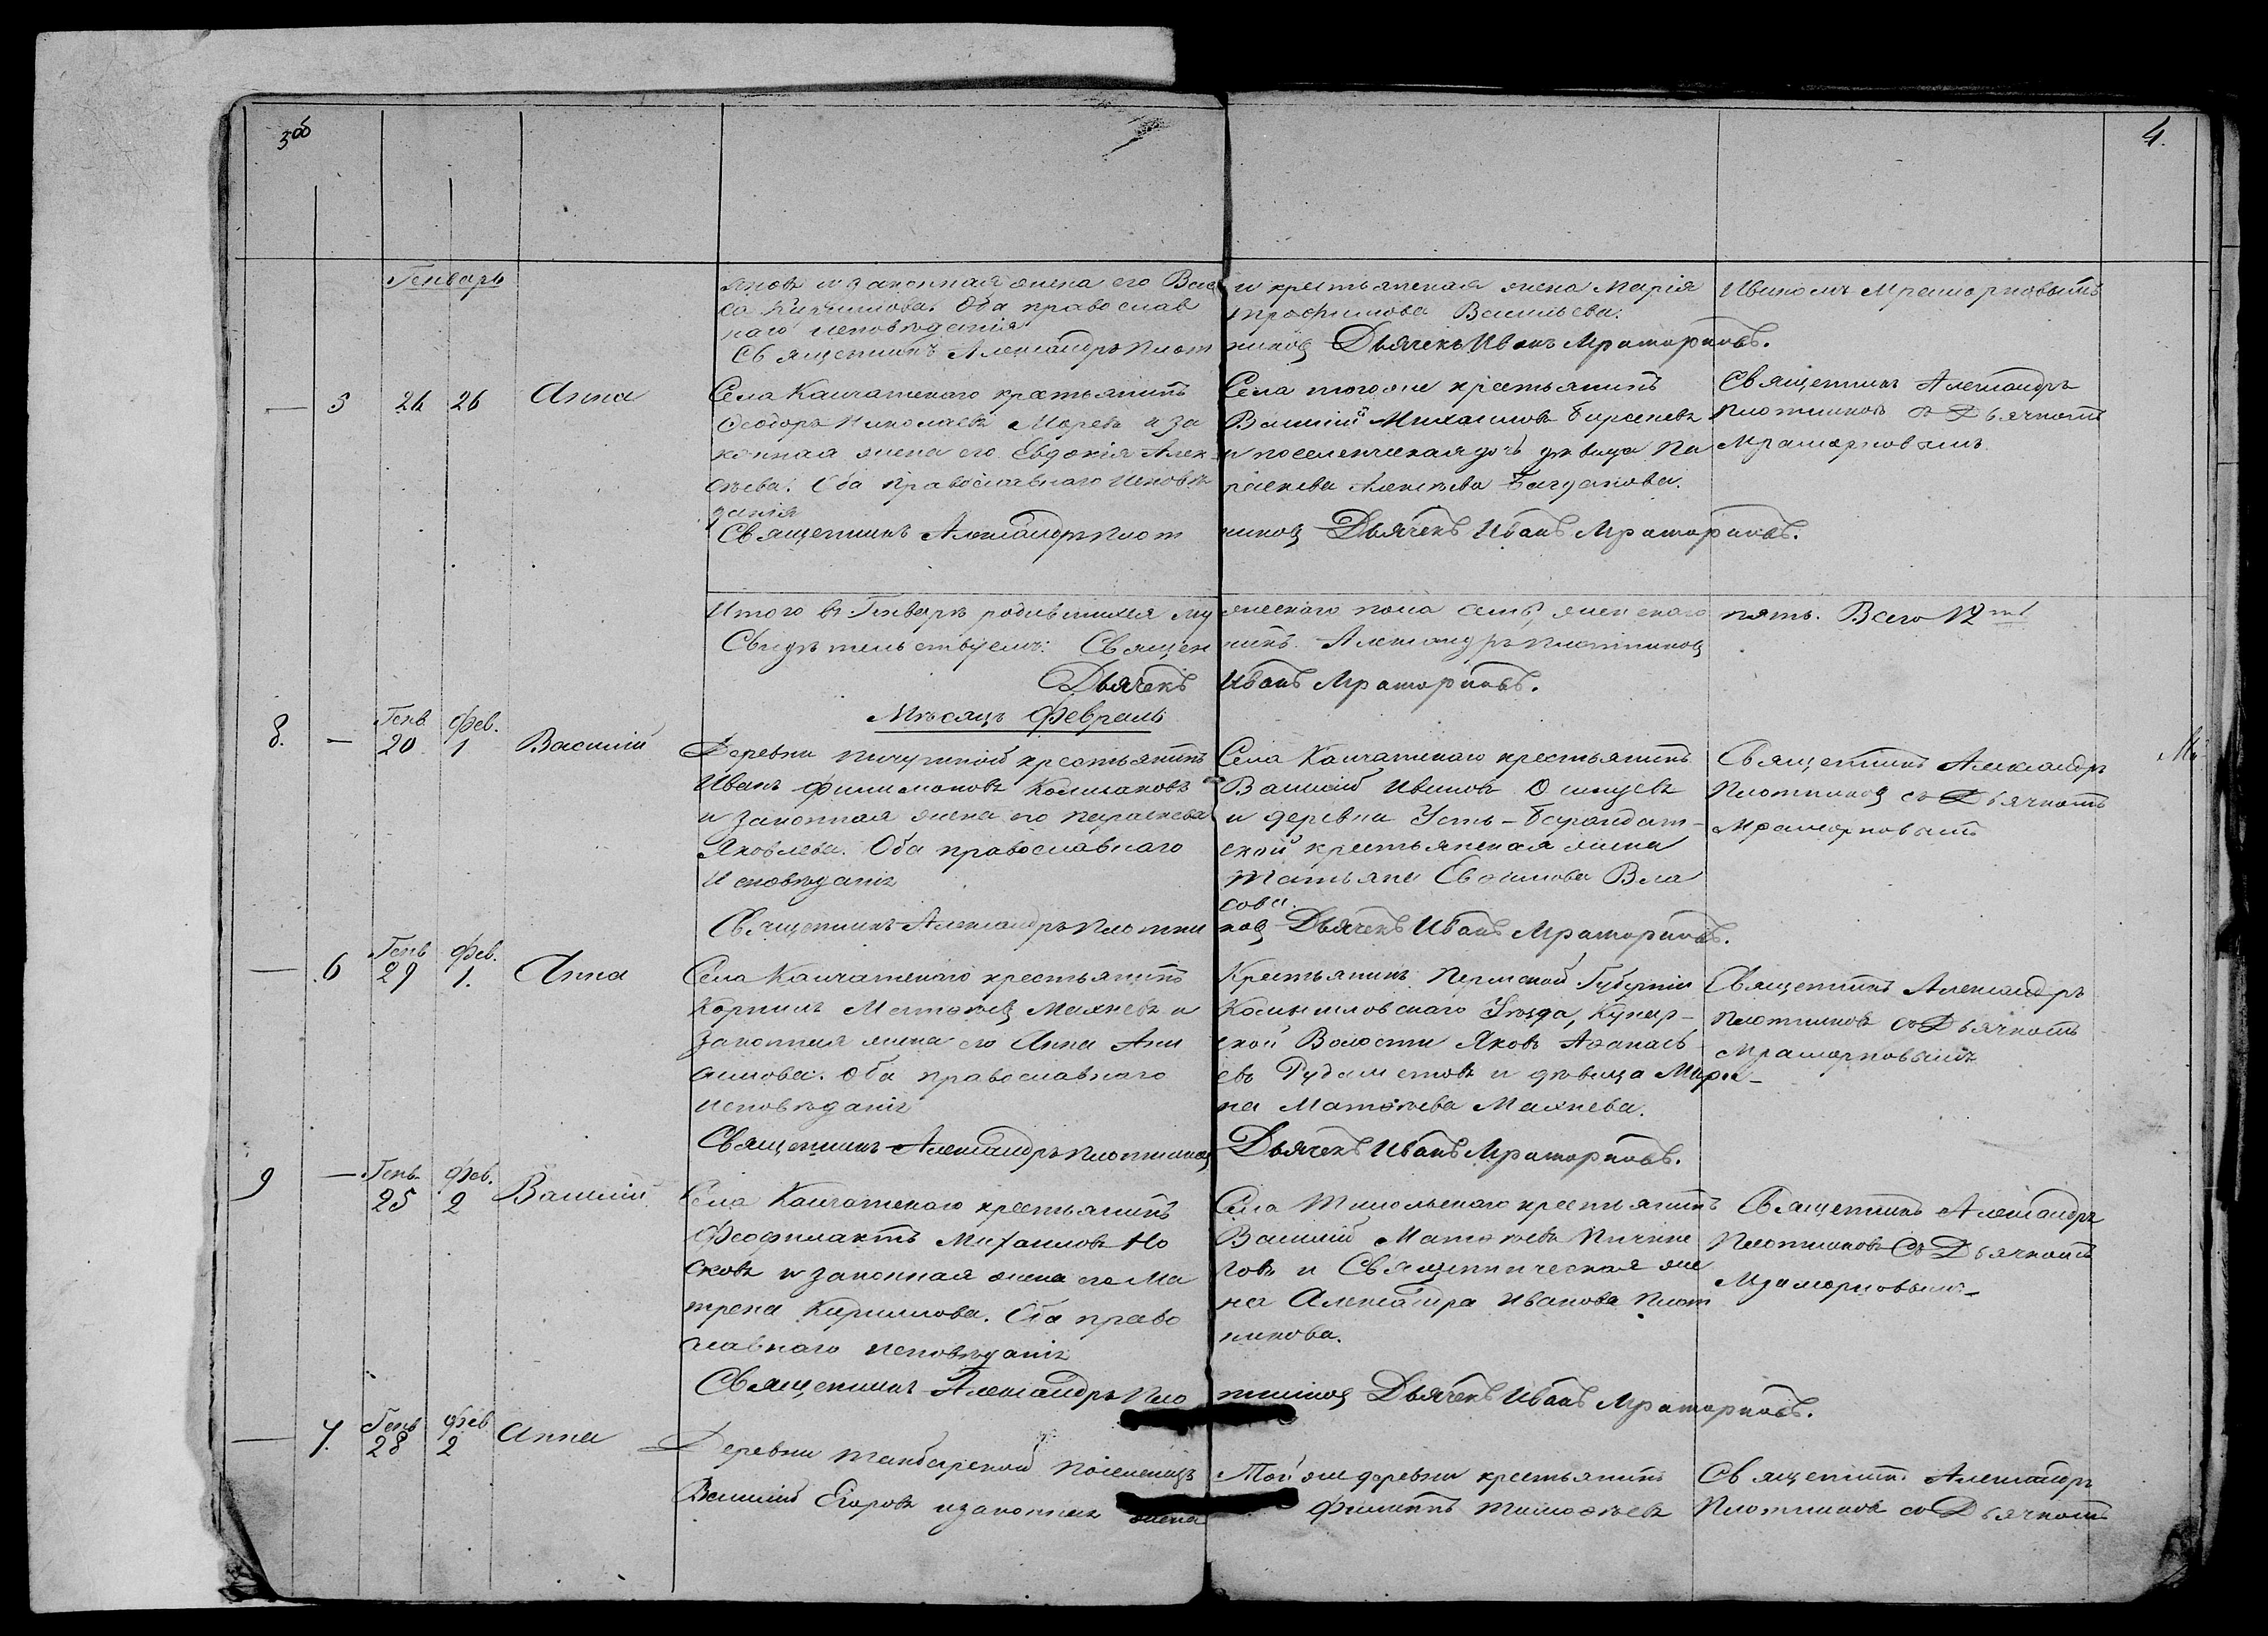 3об
4.
Генварь
яновъ и законная жена его Вас
са Евфимова. Оба православ
наго исповѣданія
Священникъ Александръ Плот
и крестьянская жена Марія
Трофимова Васильева.
никовъ Дьячекъ Иванъ Мраморновъ.
Иваномъ Мраморновымъ
— 5 26 26 Анна
Села Камчатскаго крестьянинъ
Ѳеодоръ Николаевъ Моревъ и за
конная жена его Евдокія Алек
сѣева. Оба православнаго исповѣ
данія
Священникъ Александръ Плот
Села тогоже крестьянинъ
Василій Михаиловъ Барановъ
и поселенческая дочь дѣвица Па
раскева Алексѣева Багданова.
никовъ Дьячекъ Иванъ Мраморновъ.
Священникъ Александръ
Плотниковъ съ Дьячкомъ
Мраморновымъ
Итого въ Генварѣ родившихся му
жескаго пола семь, женскаго
пять. Всего 12ть
Свидѣтельствуемъ: Священ
никъ Александръ Плотниковъ
Дьячекъ Иванъ Мраморновъ.
Мѣсяцъ Февраль
8. — Генв. 20 Фев. 1 Василій
Деревни Пичугиной крестьянинъ
Иванъ Филимоновъ Колмаковъ
и законная жена его Параскева
Яковлева. Оба православнаго
Исповѣданія
Священникъ Александръ Плотни
Села Камчатскаго крестьянинъ
Василій Ивановъ
и деревни Усть-Барандат-
ской крестьянская жена
Татьяна Вла
сова.
ковъ Дьячекъ Иванъ Мраморновъ.
Священникъ Александръ
Плотниковъ съ Дьячкомъ
Мраморновымъ
— 6 Генв 29 Фев. 1. Анна
Села Камчатскаго крестьянинъ
Корнилъ Матѳѣевъ Махневъ и
законная жена его Анна Ани
симова. Оба православнаго
исповѣданія
Священникъ Александръ Плотниковъ
Крестьянинъ Пермской Губерніи
Камышловскаго Уѣзда, Куяр-
ской Волости Яковъ Аѳанась
евъ Рудаметовъ и дѣвица Мари-
на Матѳѣева Махнева.
Дьячекъ Иванъ Мраморновъ.
Священникъ Александръ
Плотниковъ съ Дьячкомъ
Мраморновымъ
9 — Генв. 25 Фев. 2 Василій
Села Камчатскаго крестьянинъ
Ѳеофилактъ Михаиловъ Но
сковъ и законная жена его Ма
трена Кирилова. Оба право
славнаго исповѣданія
Священникъ Александръ Пло
Села Тисюльскаго крестьянинъ
Василій Матѳѣевъ Пичине
говъ и Священническая же
на Александра Иванова Плот
никова.
тниковъ Дьячекъ Иванъ Мраморновъ.
Священникъ Александръ
Плотниковъ Съ Дьячкомъ
Мраморновымъ
— 7. Генв 28 Фев 2 Анна
Деревни Тамбарской поселенецъ
Василій Егоровъ и законная жена
Той же деревни крестьянинъ
Филиппъ Тимоѳѣевъ
Священникъ Александръ
Плотниковъ съ Дьячкомъ